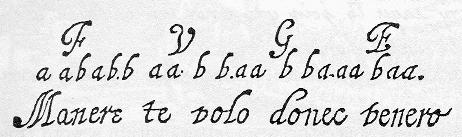 F V G E
a ababb.b aa b b.aa b ba.aa baa.
Manere te volo donec venero